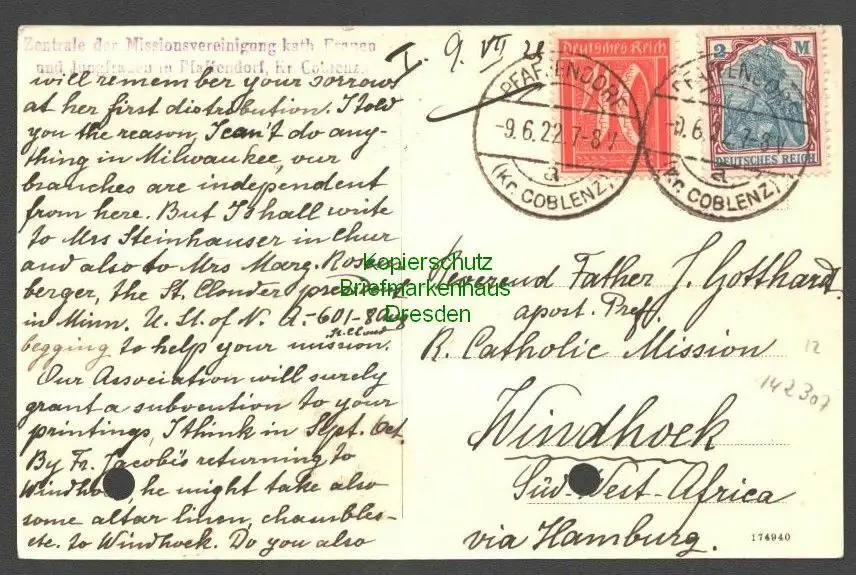 Zentrale der Missionsvereinigung kath. Frauen
und Jungfrauen in Pfaffendorf, Kr. Coblenz.
will remember your sorrows
at her first distribution. I told
you the reason, I can't do any-
thing in Milwaukee, our
branches are independent
from here. But I shall write
to Mrs Steinhauser in Chur
and also to Mrs Marg. Rosen-
berger, the St. Clouder
in Minn. U. St. of N. A. - 601 - 8
St. Cloud
begging to help your mission.
Our Association will surely
grant a subvention to your
printings, I think in Sept. Oct.
By Fr. Jacobi's returning to
Windho he might take also
some altar linen,
etc. to Windhoek. Do you also
I. 9. VII 22
Deutsches Reich
2 M
DEUTSCHES REICH
PFAFFENDORF
-9.6.22.7-8V
a
(Kr. COBLENZ)
PFAFFENDORF
9.6.22.7-8V
a
(Kr. COBLENZ)
Reverend Father J. Gotthardt
apost. Pref.
R. Catholic Mission
Windhoek
Süd-West-Africa
via Hamburg.
12
142307
174940
Kopierschutz
Briefmarkenhaus
Dresden